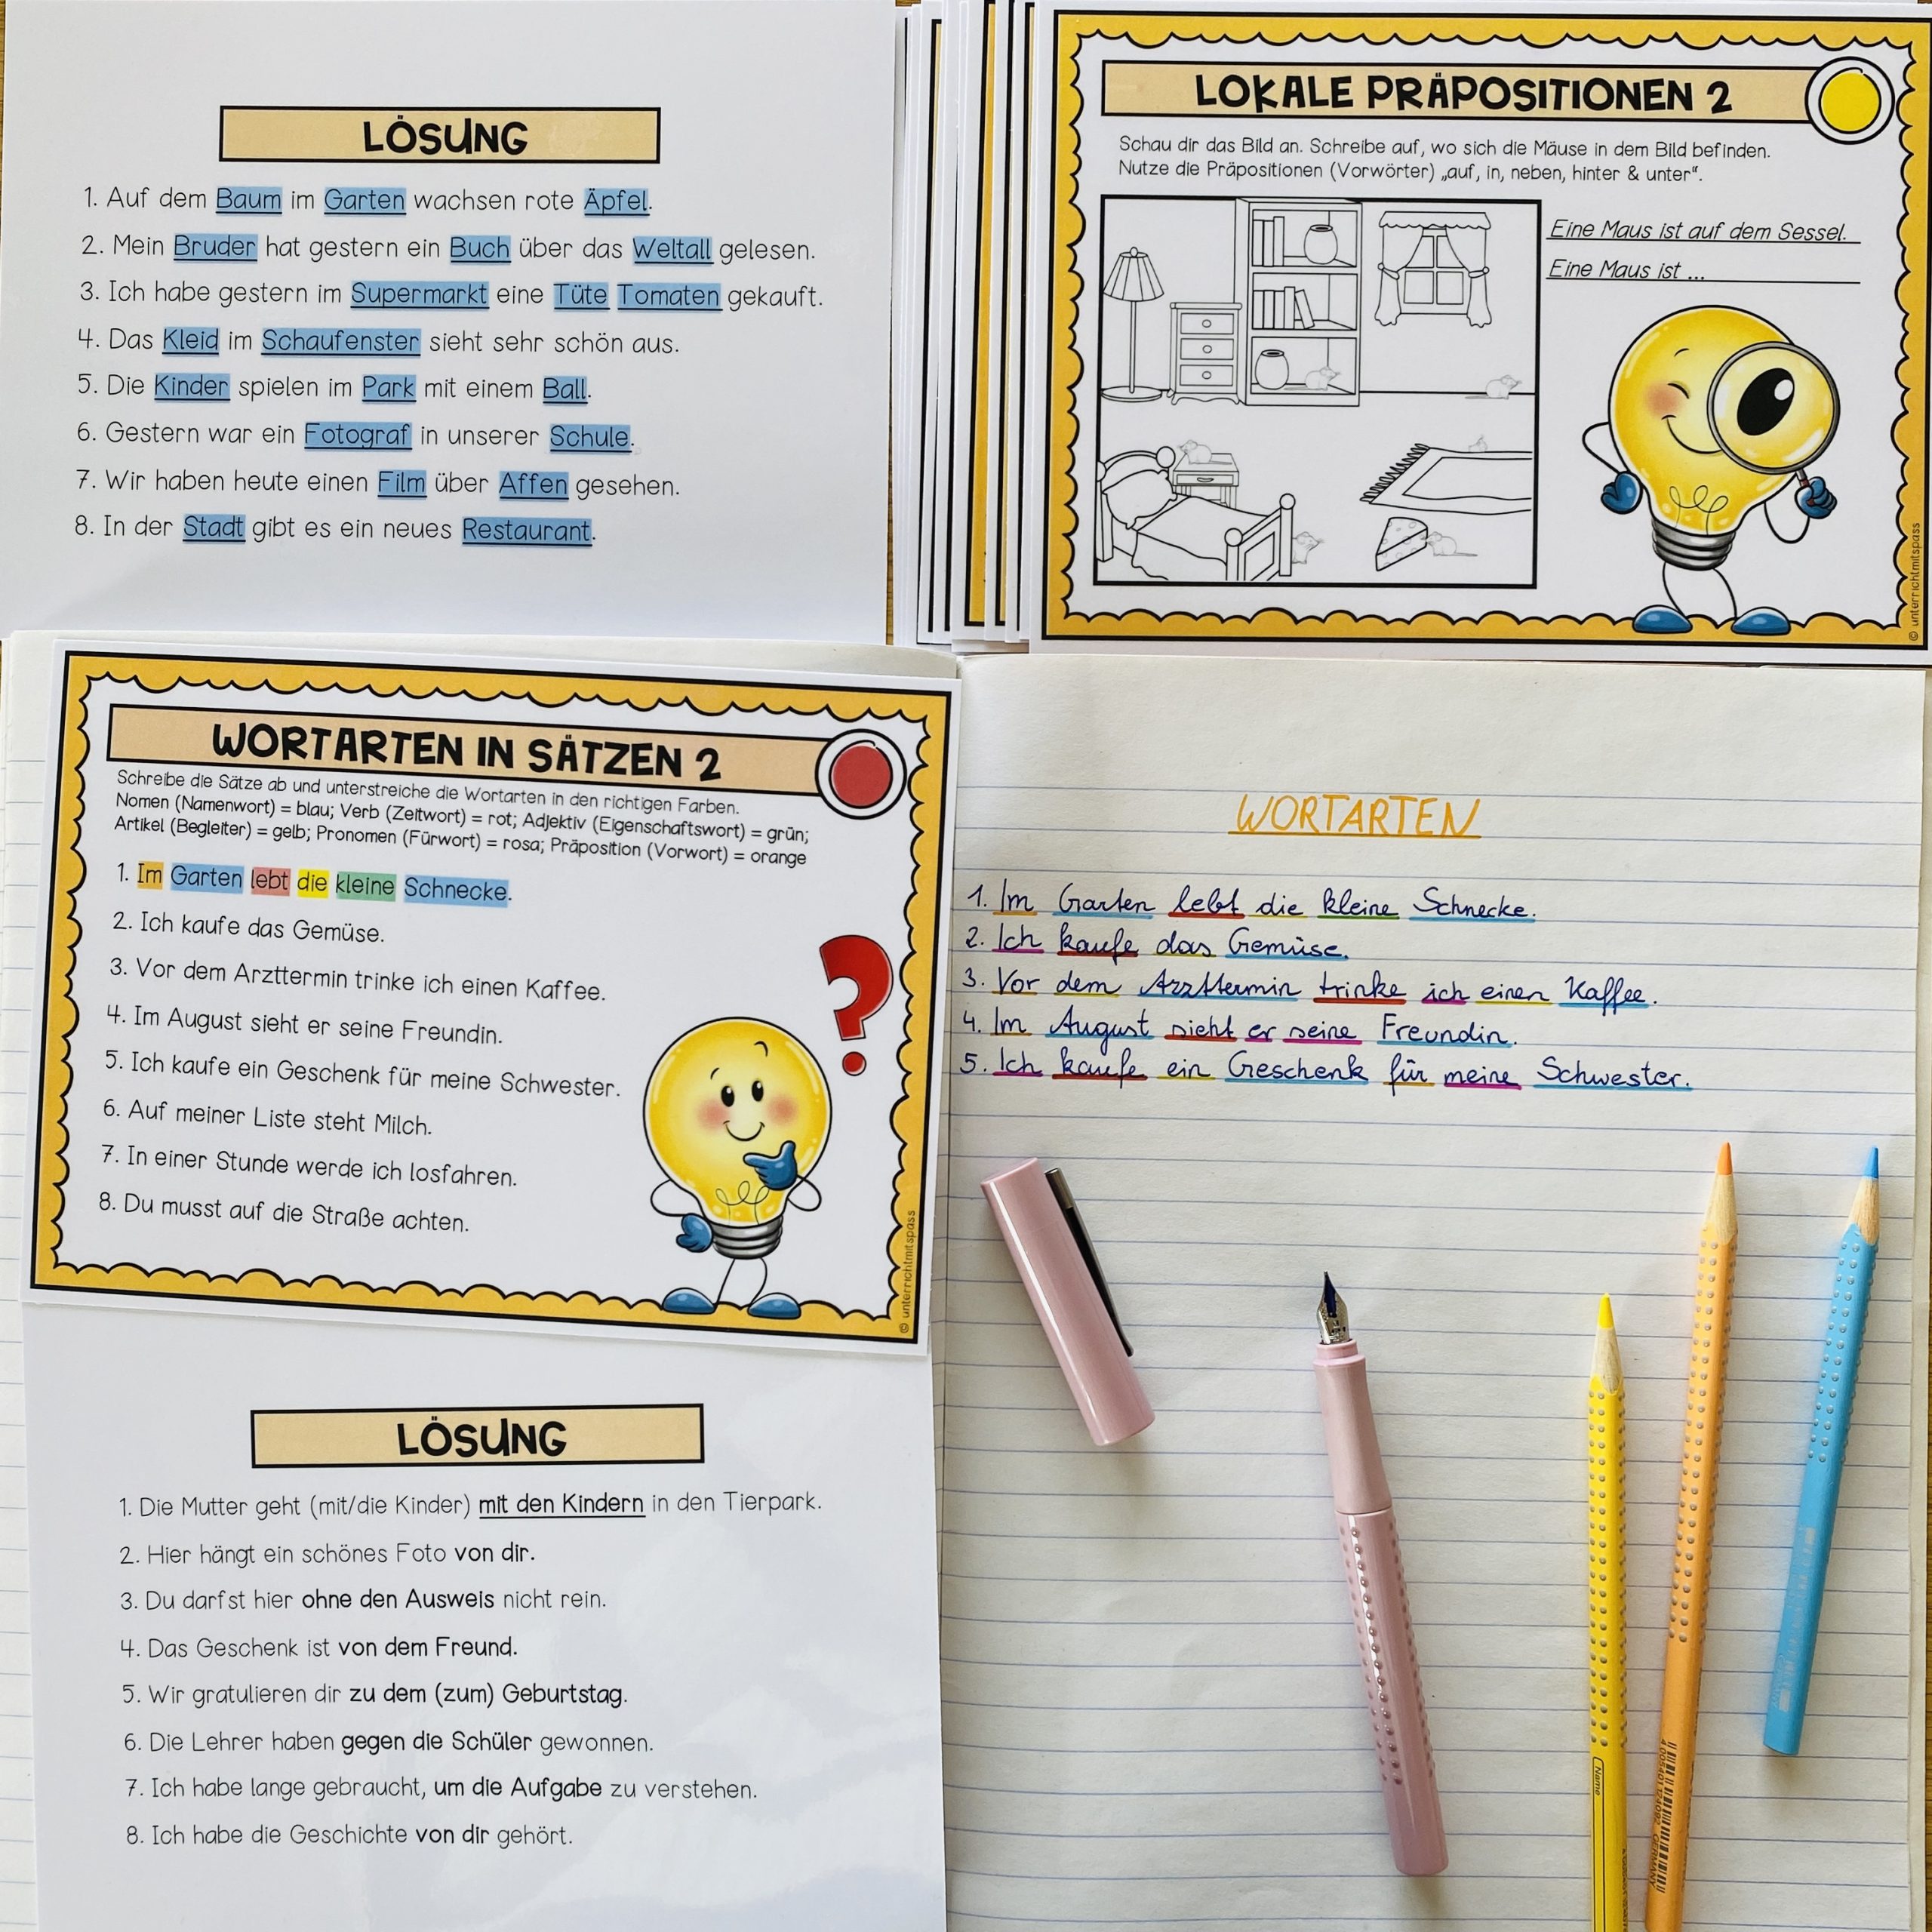 LÖSUNG
1. Auf dem Baum im Garten wachsen rote Äpfel.
2. Mein Bruder hat gestern ein Buch über das Weltall gelesen.
3. Ich habe gestern im Supermarkt eine Tüte Tomaten gekauft.
4. Das Kleid im Schaufenster sieht sehr schön aus.
5. Die Kinder spielen im Park mit einem Ball.
6. Gestern war ein Fotograf in unserer Schule.
7. Wir haben heute einen Film über Affen gesehen.
8. In der Stadt gibt es ein neues Restaurant.
LOKALE PRÄPOSITIONEN 2
Schau dir das Bild an. Schreibe auf, wo sich die Mäuse in dem Bild befinden.
Nutze die Präpositionen (Vorwörter) „auf, in, neben, hinter & unter“.
Eine Maus ist auf dem Sessel.
Eine Maus ist ...
© unterrichtmitspass
WORTARTEN IN SÄTZEN 2
Schreibe die Sätze ab und unterstreiche die Wortarten in den richtigen Farben.
Nomen (Namenwort) = blau; Verb (Zeitwort) = rot; Adjektiv (Eigenschaftswort) = grün;
Artikel (Begleiter) = gelb; Pronomen (Fürwort) = rosa; Präposition (Vorwort) = orange
1. Im Garten lebt die kleine Schnecke.
2. Ich kaufe das Gemüse.
3. Vor dem Arzttermin trinke ich einen Kaffee.
4. Im August sieht er seine Freundin.
5. Ich kaufe ein Geschenk für meine Schwester.
6. Auf meiner Liste steht Milch.
7. In einer Stunde werde ich losfahren.
8. Du musst auf die Straße achten.
?
© unterrichtmitspass
WORTARTEN
1. Im Garten lebt die kleine Schnecke.
2. Ich kaufe das Gemüse.
3. Vor dem Arzttermin trinke ich einen Kaffee.
4. Im August sieht er seine Freundin.
5. Ich kaufe ein Geschenk für meine Schwester.
LÖSUNG
1. Die Mutter geht (mit/die Kinder) mit den Kindern in den Tierpark.
2. Hier hängt ein schönes Foto von dir.
3. Du darfst hier ohne den Ausweis nicht rein.
4. Das Geschenk ist von dem Freund.
5. Wir gratulieren dir zu dem (zum) Geburtstag.
6. Die Lehrer haben gegen die Schüler gewonnen.
7. Ich habe lange gebraucht, um die Aufgabe zu verstehen.
8. Ich habe die Geschichte von dir gehört.
Name
GERMANY